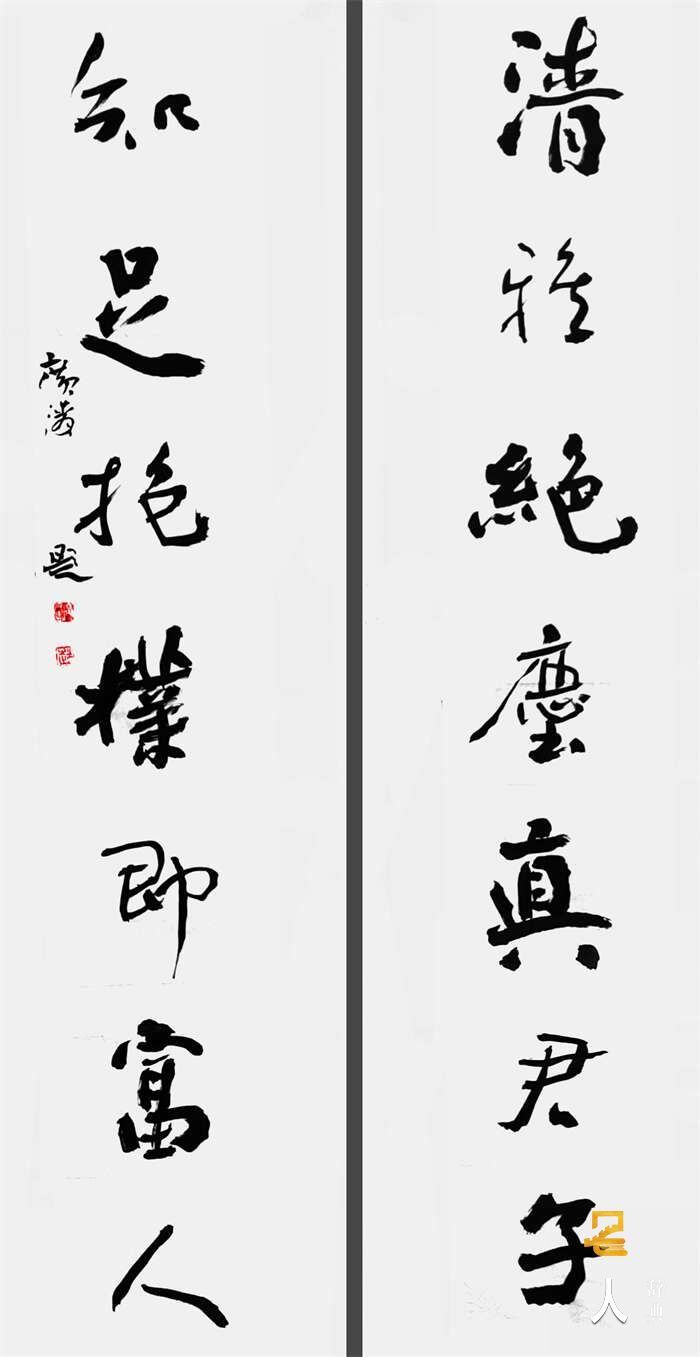 清雅絕塵真君子
知足抱樸即富人
廣濤題